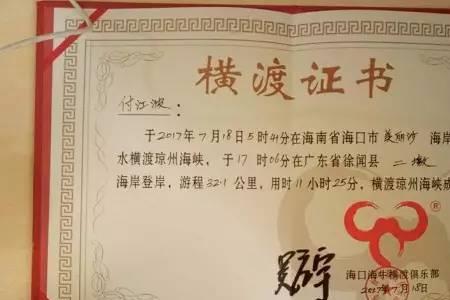 横渡证书
付江波：
于2017年7月18日5时41分在海南省海口市 美丽沙 海岸
水横渡琼州海峡，于 17 时06分在广东省徐闻县 二墩
海岸登岸，游程32.1公里，用时11小时25分，横渡琼州海峡成
®
海口海牛横渡俱乐部
2017年7月18日